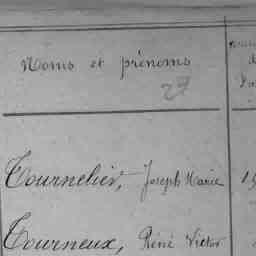 Noms et prénoms
27
Tournelier, Joseph Marie
Tourneux, Réné Victor